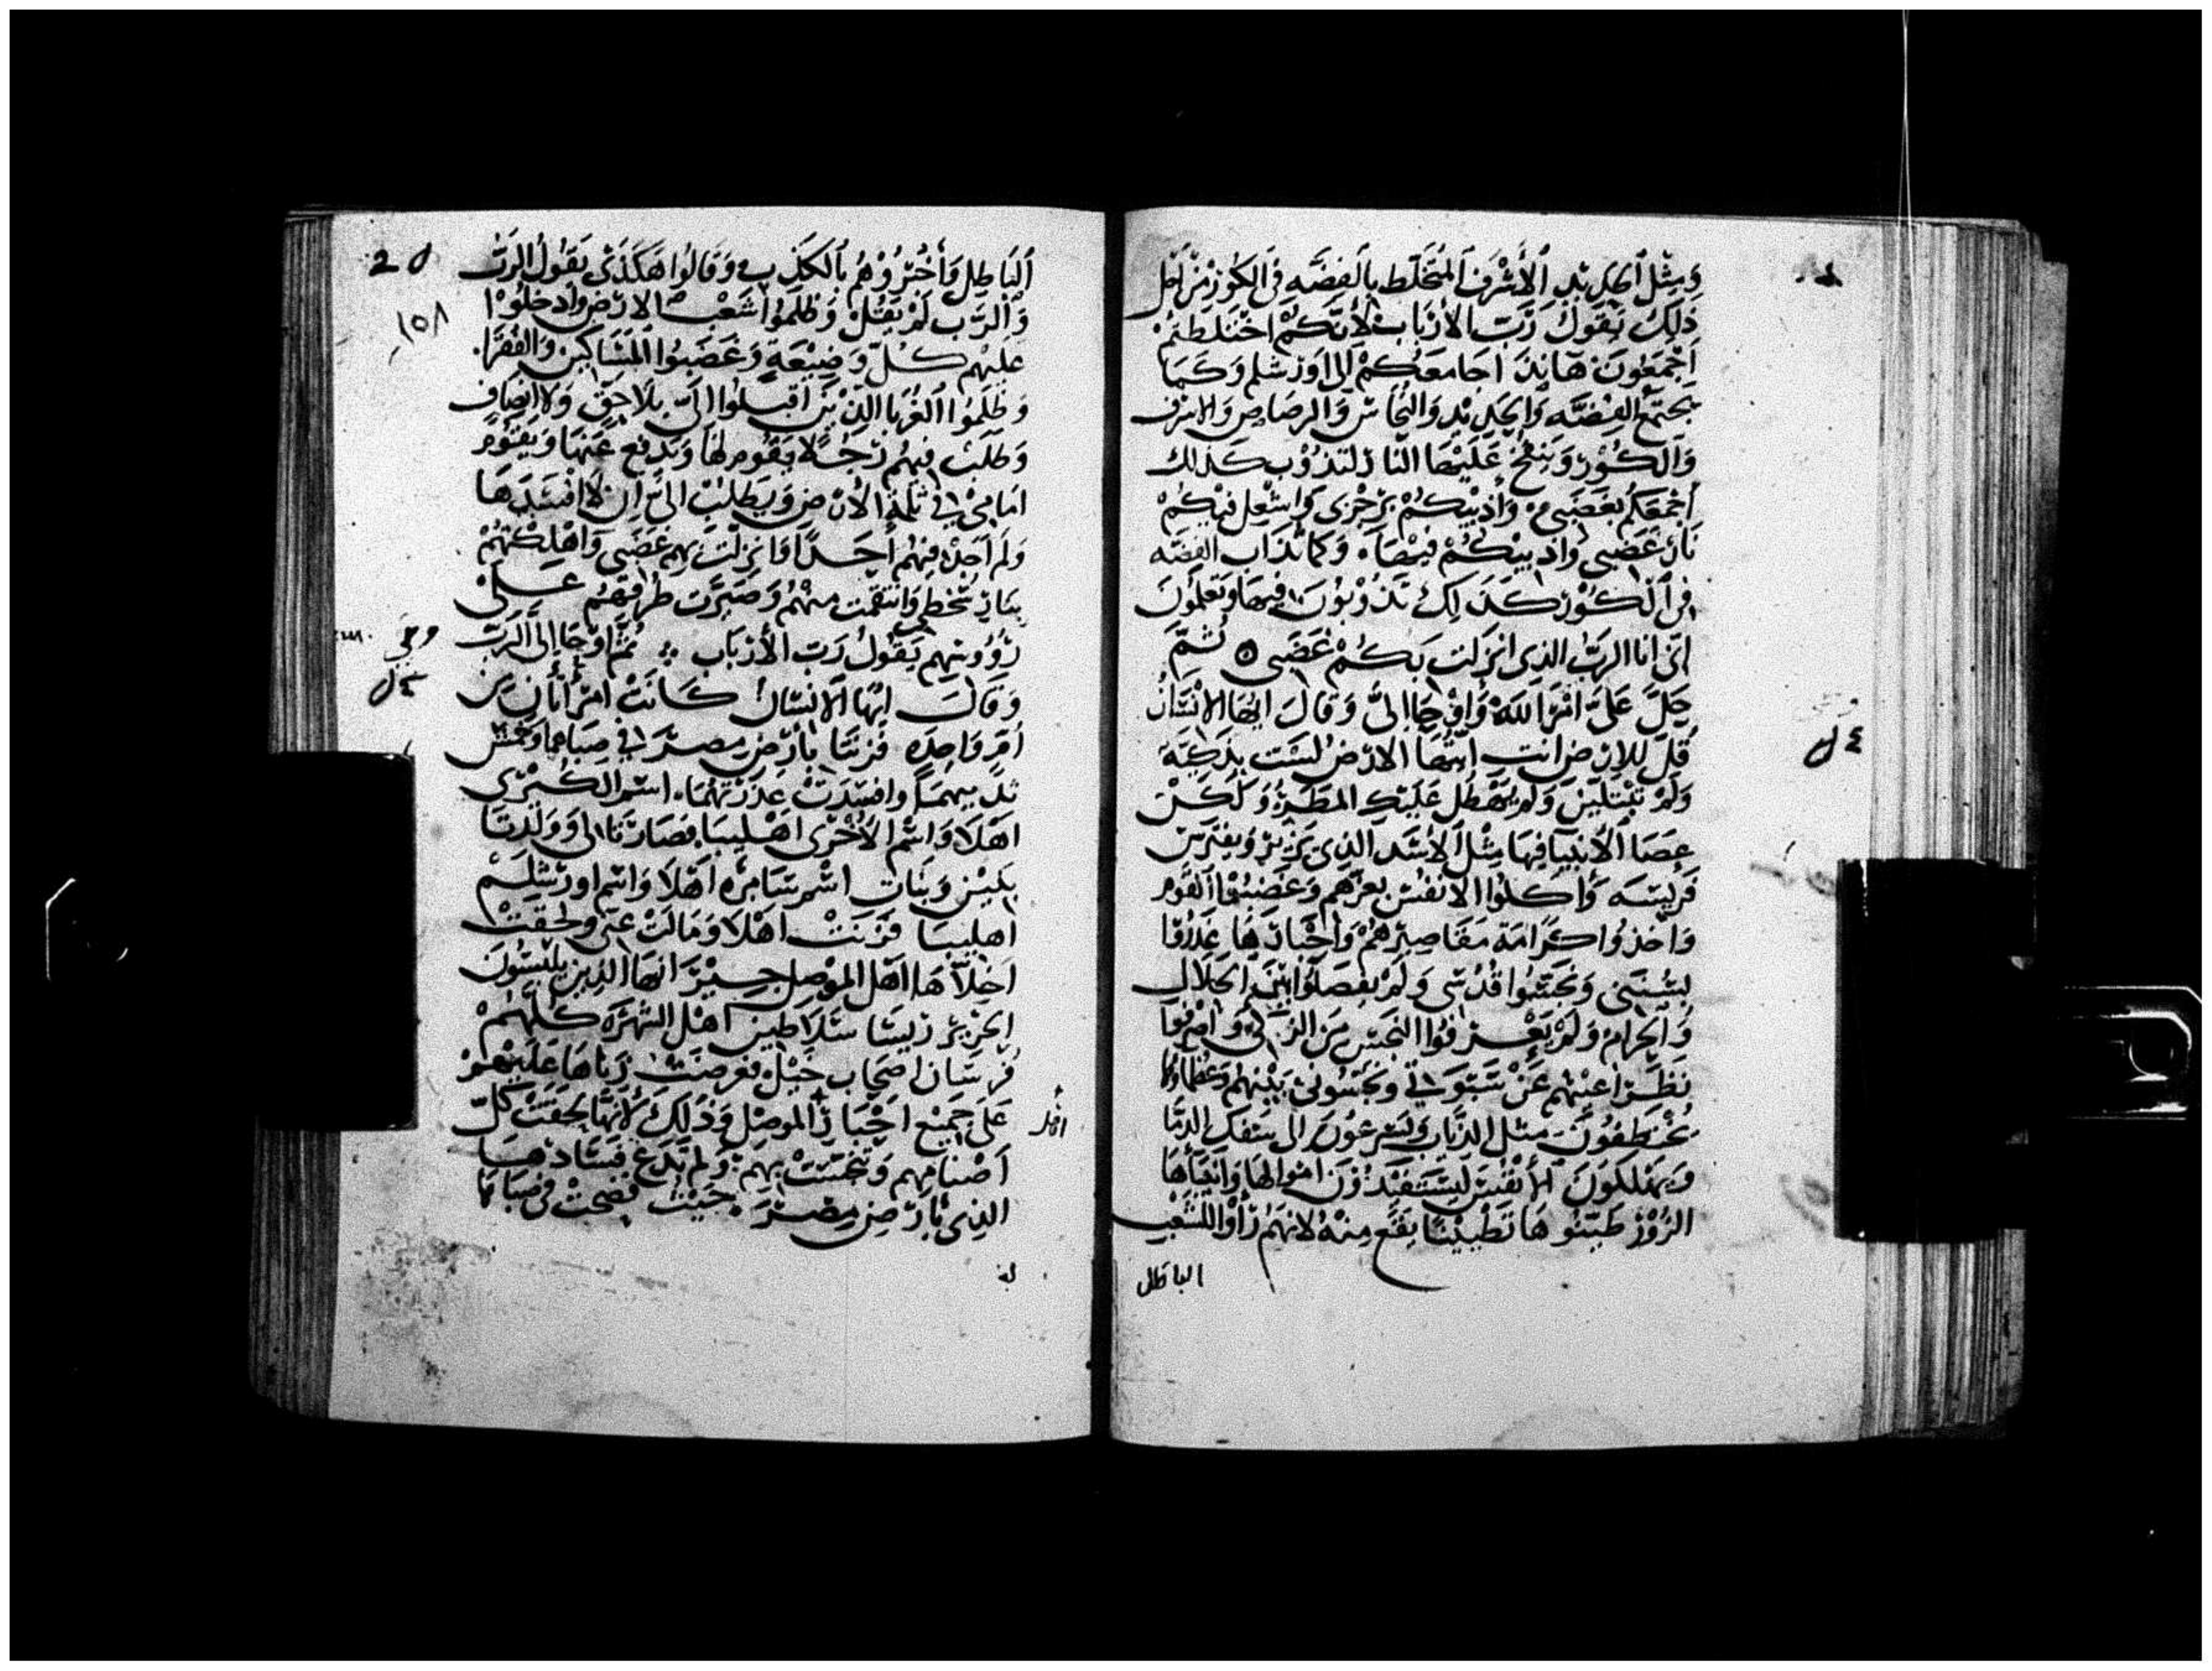 وَمِثْل الحديد الأشرف المتخلط بالفضه في الكور من اجل
ذلك يَقول رَبّ الارباب لأنكم اختلطتم
اجمعون هَانذَا جامعكم الى اورشلم وَكما
يجتمع الفضه والحديد والنحاس والرصاص والاشرف
والكور وينفخ عَليها النار لتذوب كذلك
اجمعكم بغضبي واذيبكم برجزى واشعل فيكم
نار غضبي واذيبكم فيها وكما تذاب الفضه
في الكور كذلك تذوبون فيها وتعلمون
اني انا الرب الذي انزلت بكم غضبي ثم
حل عَليَّ امر الله وَاوحا اليَّ وَقال ايها الانسان
قل للارض انت ايتها الارض لست بذكيه
ولم تبتلين ولم يهطل عليك المطر ولكن
عصا الأنبيا فيها مثل الاسد الذي يزير ويفترس
فريسه وَاكلوا الانفس بعزهم وَغضبوا القوم
واخذوا كرامة مقاصيرهم واحبارها غدروا
بسنتي ونجسوا قدسي ولم يفصلوا بين الحلال
والحرام ولم يعرفوا النجس من الزكي وَاصرفوا
نظرا عنهم عن سبوتي ونجسوني بينهم وعظماوها
يختطفون مثل الذياب ويسرعون الى سفك الدما
ويهلكون الانفس ليستنفدون اموالها وانبياها
الزور طينوها تطيينا يقع منه لانهم راوا للشعب
الباطل
الباطل وَاخبروهم بالكذب وَقالوا هكذى يقول الرب
والرب لم يقل وظلموا شعب الارض وادخلوا
عليهم كل وضيعة وَغضبوا المساكين والفقرا
وظلموا الغربا الذين اقبلوا اليّ بلا حق ولا انصاف
وطلبت فيهم رجلا يقوم لها ويدفع عنها ويقوم
امامي في ثلمة الارض ويطلب اليّ ان لا افسدها
ولم اجد فيهم أحدًا فانزلت بهم غضبي وَاهلكتهم
بنار سخطي وانتقمت منهم وصيرت طرقهم على
رؤوسهم يقول رب الأرباب ثم اوحا الى الرب
وحي
وَقال ايها الانسان كانت امرأتان من
أم واحده فزنتا بارض مصر في صباهما وتحسس
ثدييهما وافسدت عذرتهما اسم الكبرى
اهلا وَاسم الاخرى اهليبا فصارتا لي وولدتا
بنين وبنات اسم سامره اهلا واسم اورشلم
اهليبا فزنت اهلا ومالت عني ولحقت
اخلاها اهل الموصل جيرانها الذين يلبسون
الحرير ريسا سلاطين اهل الشهره كلهم
فرسان اصحاب خيل فعرضت زناها عليهم
على جميع اخيار الموصل وذلك لأنها لحقت كل
اصنامهم وتنجست بهم ولم تدع فسادها
الذي بارض مصر حيث فضحت في صباها